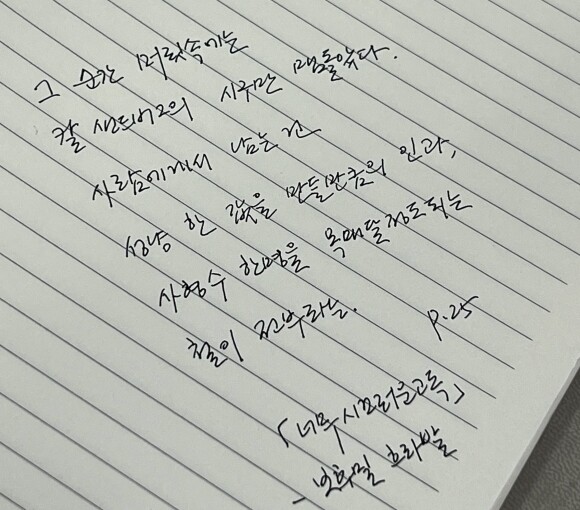 그 순간 머릿속에는
칼 샌드버그의 시구만 맴돌았다.
사람에게서 남는 건
성냥 한 갑을 만들만큼의 인과,
사형수 한명을 목매달정도되는
철이 전부라는.
P.25
「너무 시끄러운 고독」
- 보후밀 흐라발